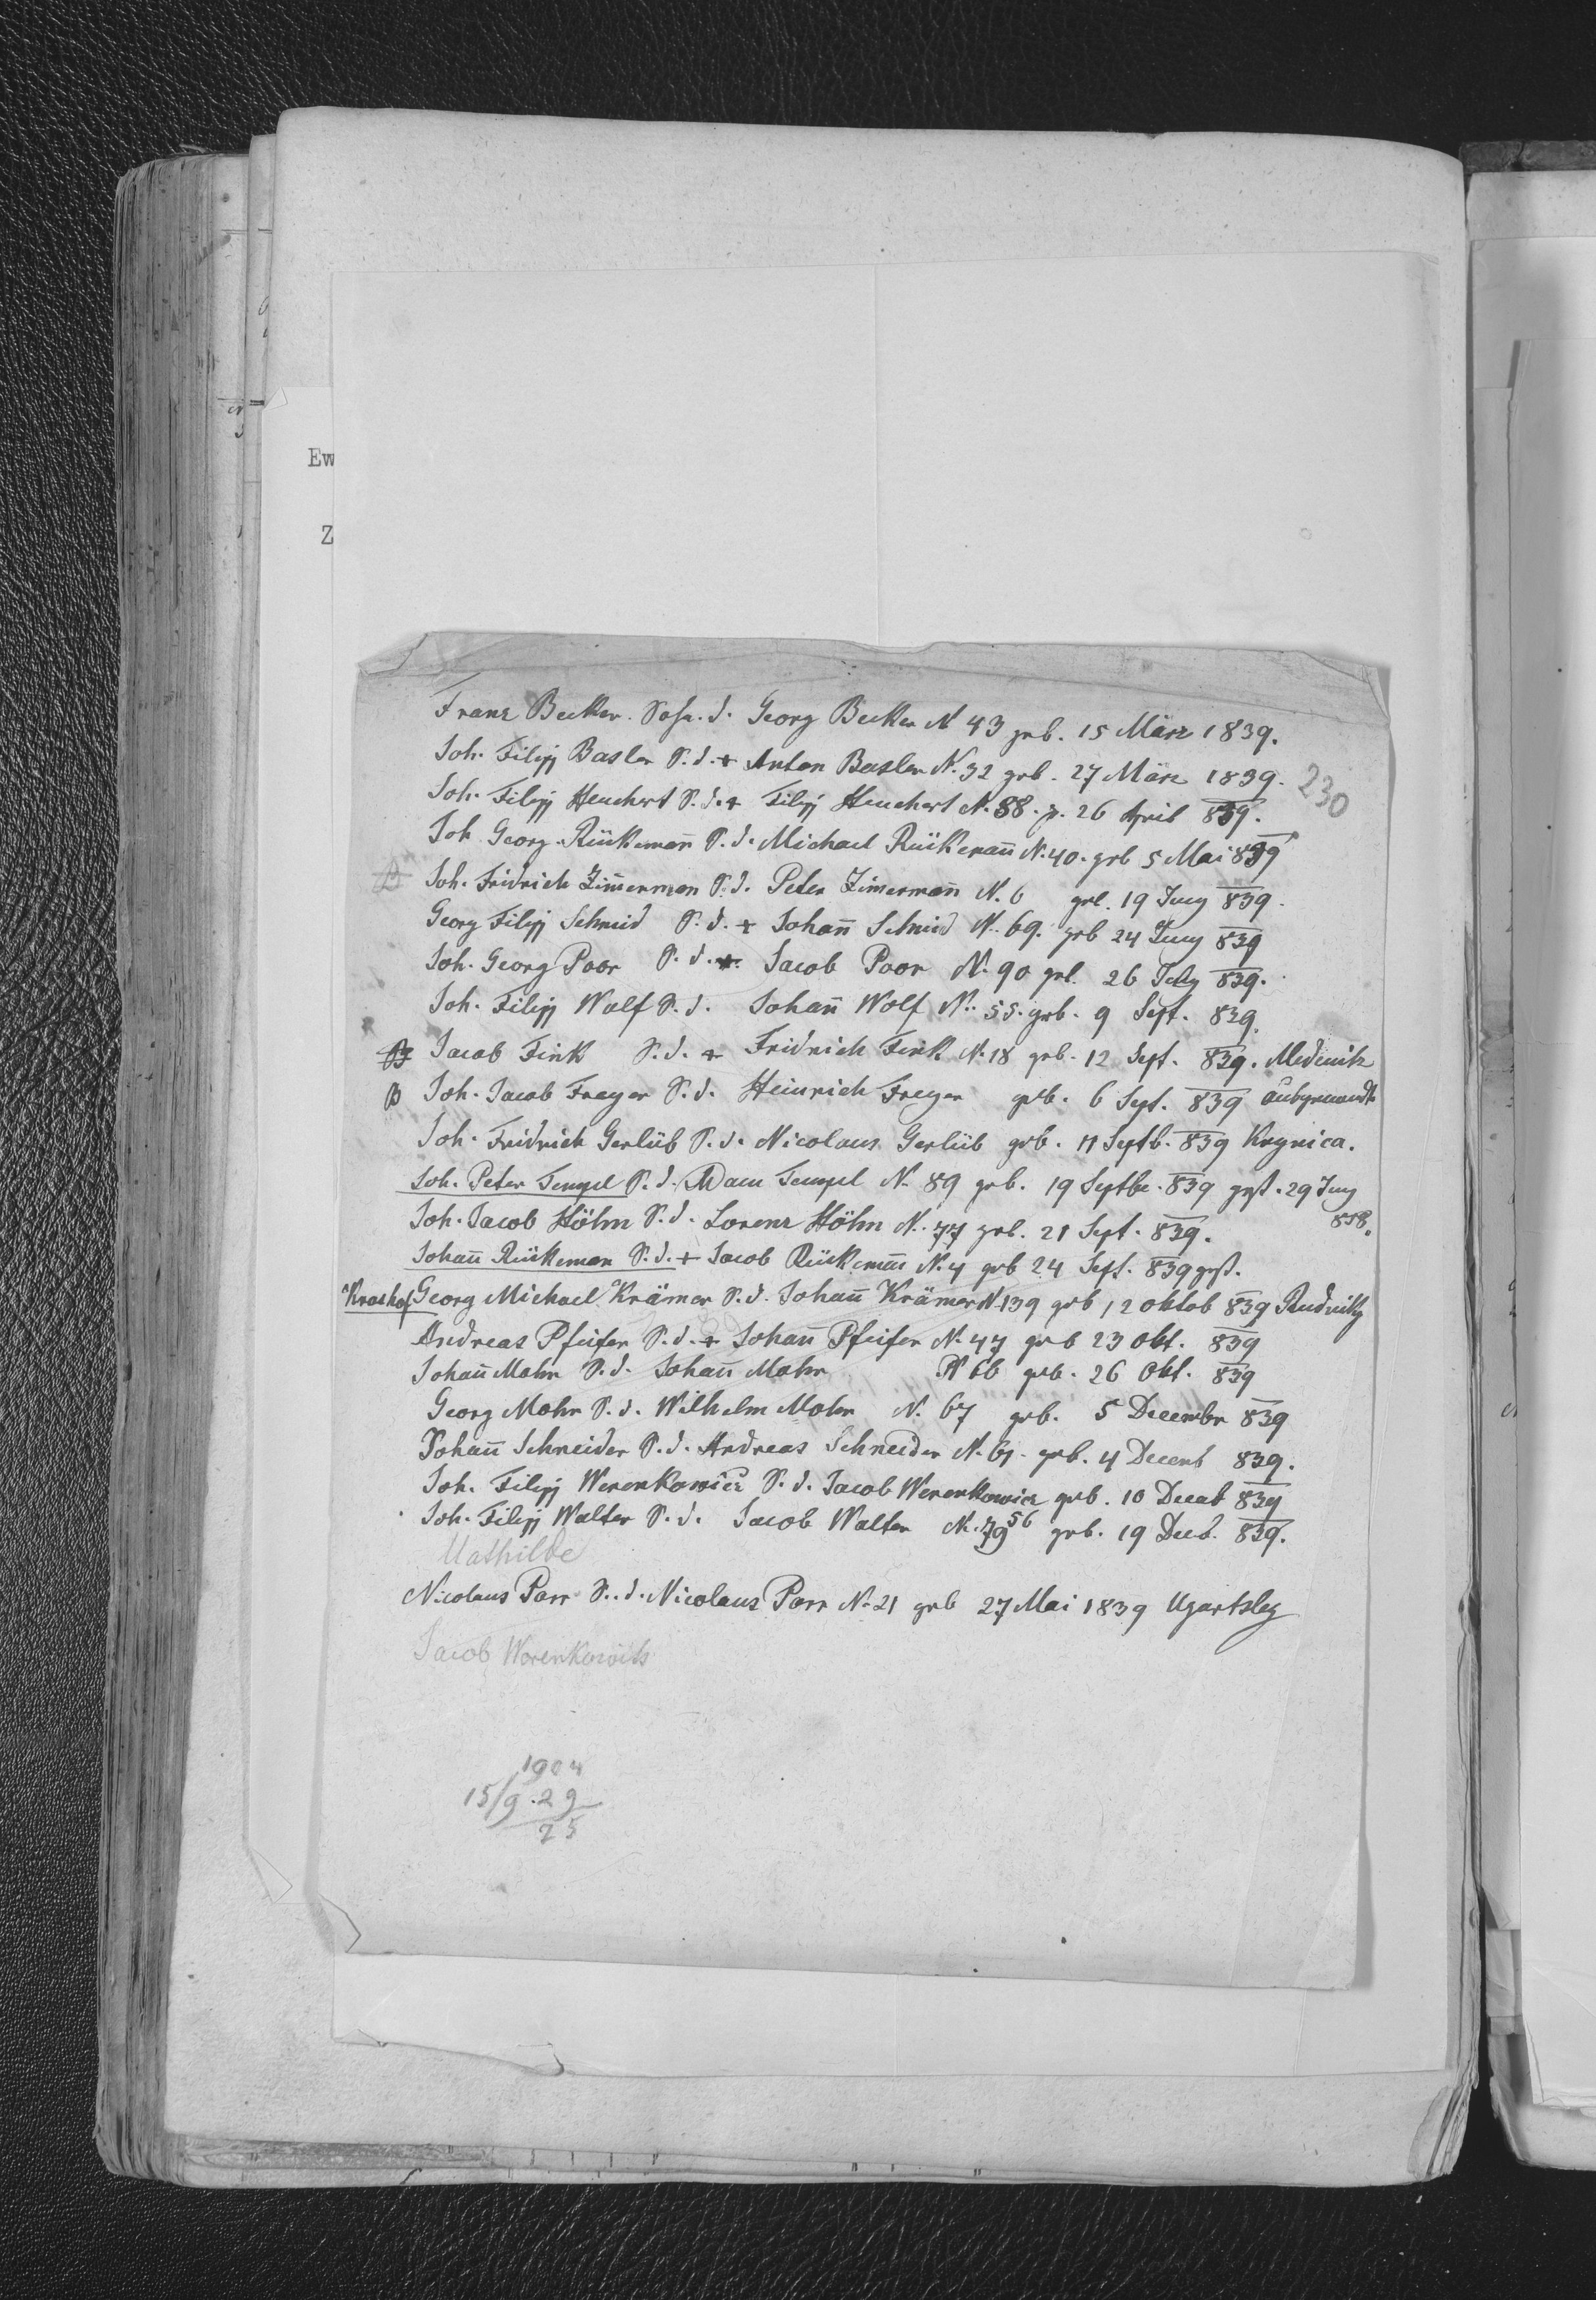 Ew
Z
230
Franz Becker Sohn. d. Georg Becker N 43 geb. 15 März 1839.
Joh. Filipp Basler S. d. + Anton Basler N. 32 geb. 27 März 1839.
Joh. Filipp Heuchert S. d. + Filipp Heuchert N. 88. g. 26 April 839.
Joh Georg Rükeman̄ S. d. Michael Rükeman̄ N. 40. geb 5 Mai 839
B Joh. Fridrich Zim̄erman S. d. Peter Zimerman̄ N. 6 geb. 19 Juny 839.
Georg Filipp Schmid S. d. + Johan̄ Schmid N. 69. geb 24 Juny 839
Joh. Georg Poor S. d. +. Jacob Poor N. 90 geb. 26 July 839.
Joh. Filipp Wolf S. d. Johan̄ Wolf N. 55. geb. 9 Sept. 839.
B Jacob Fink S. d. + Fridrich Fink N. 18 geb. 12 Sept. 839. Medenitz
B Joh. Jacob Freyer S. d. Heinrich Freyer geb. 6 Sept. 839
Joh. Fridrich Gerlüb S. d. Nicolaus Gerlüb geb. 11 Septb. 839 Krynica.
Joh. Peter Tempel S. d. Adam Tempel N. 89 geb. 19 Septbe. 839 gest. 29 Juny
858.
Joh. Jacob Höhn S. d. Lorenz Höhn N. 77 geb. 21 Sept. 839.
Johan̄ Rükeman S. d. + Jacob Rükeman̄ N. 4 geb 24 Sept. 839 gest.
Georg Michael Krämer S. d. Johan̄ Krämer N. 139 geb 12 oktob 839
Andreas Pfeifer S. d. + Johan̄ Pfeifer N. 47 geb 23 Okt. 839
Johan̄ Mohr S. d. Johan̄ Mohr N 66 geb. 26 Okt. 839
Georg Mohr S. d. Wilhelm Mohr N. 67 geb. 5 Decembr 839
Johan̄ Schneider S. d. Andreas Schneider N. 61. geb. 4 Decemb 839.
Joh. Filipp Werenkowicz S. d. Jacob Werenkowicz geb. 10 Decab 839
Joh. Filipp Walter S. d. Jacob Walter N. 79 56 geb. 19 Decb. 839.
Mathilde
Nicolaus Parr S. d. Nicolaus Parr N. 21 geb 27 Mai 1839 Ugartsley
Jacob Worenkowits
1904
15/9.29
75